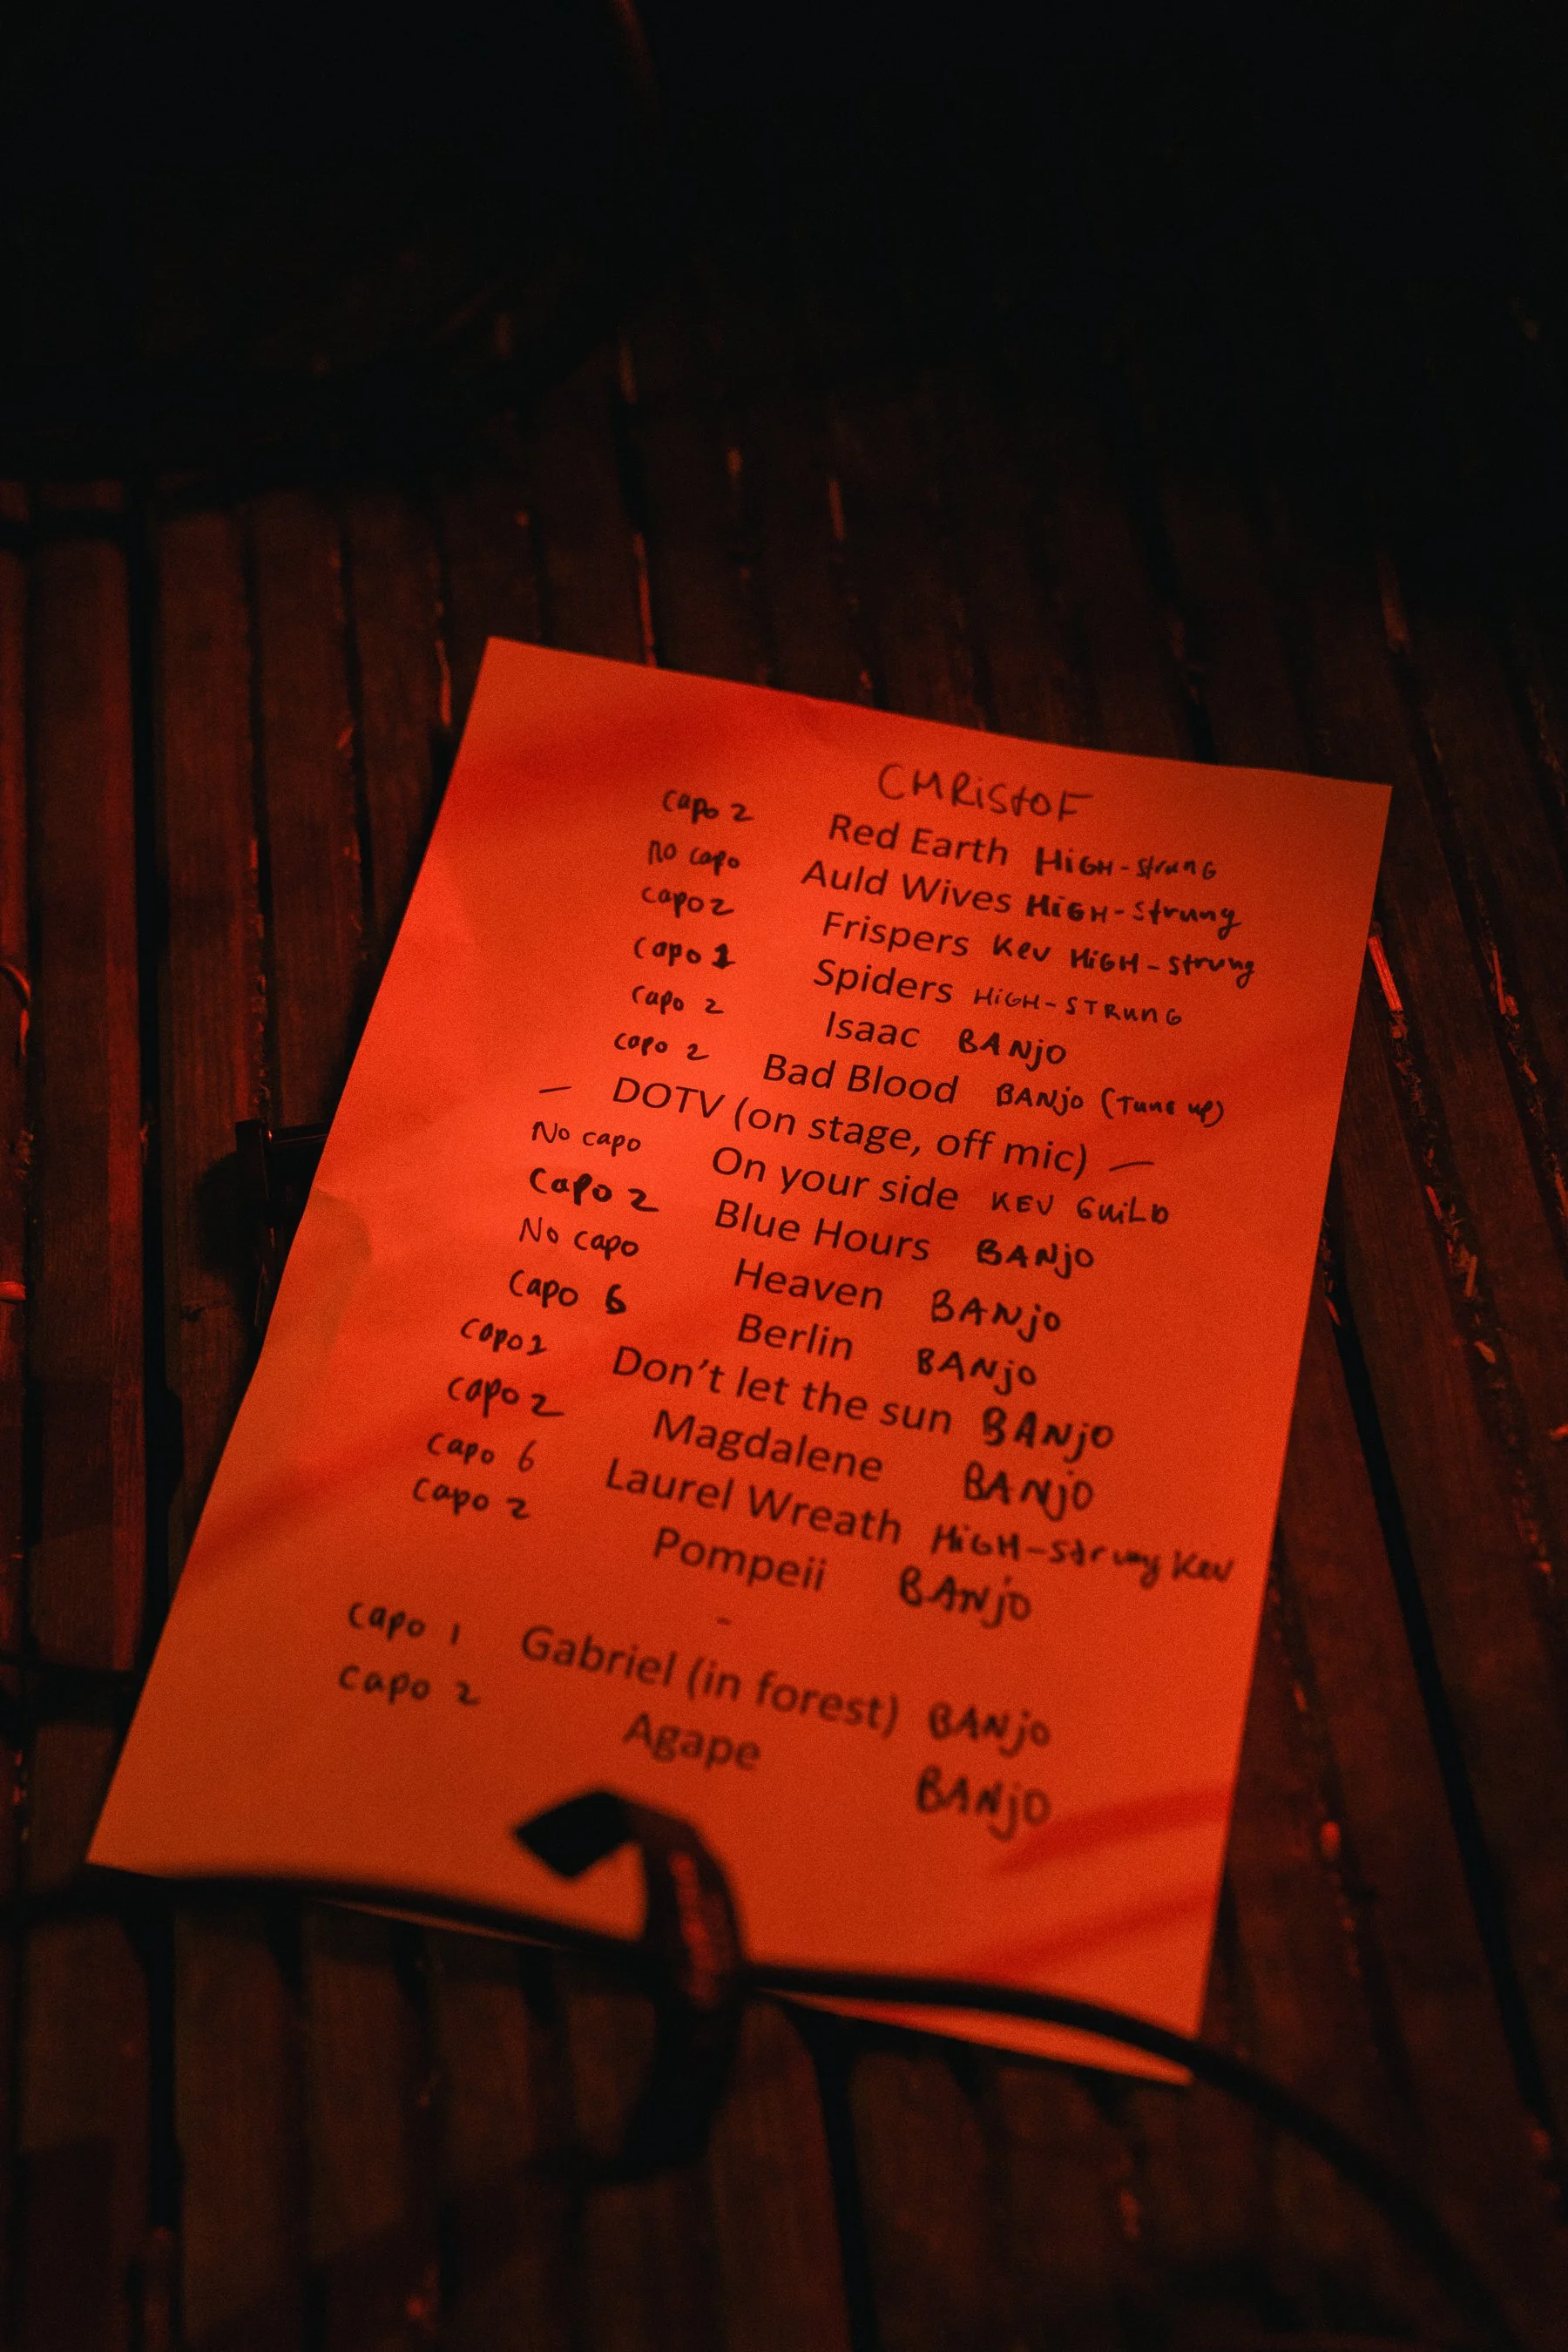 CHRIStOF
capo 2 Red Earth HiGH-strunG
no capo Auld Wives HiGH-Strung
capo 2 Frispers Kev HiGH-Strung
capo 1 Spiders HiGH-STRunG
capo 2 Isaac BANjo
capo 2 Bad Blood BANjo (Tune up)
— DOTV (on stage, off mic) —
No capo On your side KEV GuiLD
Capo 2 Blue Hours BANjo
No capo Heaven BANjo
Capo 6 Berlin BANjo
capo 1 Don't let the sun BANjo
capo 2 Magdalene BANjO
capo 6 Laurel Wreath HiGH-Strung Kev
capo 2 Pompeii BANjo
-
capo 1 Gabriel (in forest) BANjo
capo 2 Agape BANjO